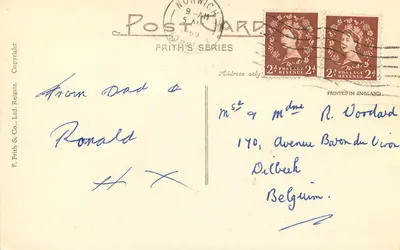 NORWICH
POST CARD
FRITH'S SERIES
Address only
POSTAGE REVENUE
2d 2d
POSTAGE REVENUE
2d 2d
PRINTED IN ENGLAND
F. Frith & Co., Ltd. Reigate. Copyright
From Dad &
Ronald
H X
Mse & Mdme R. Woodard
170, Avenue Baron du Vivon
Dilbeek
Belgium.